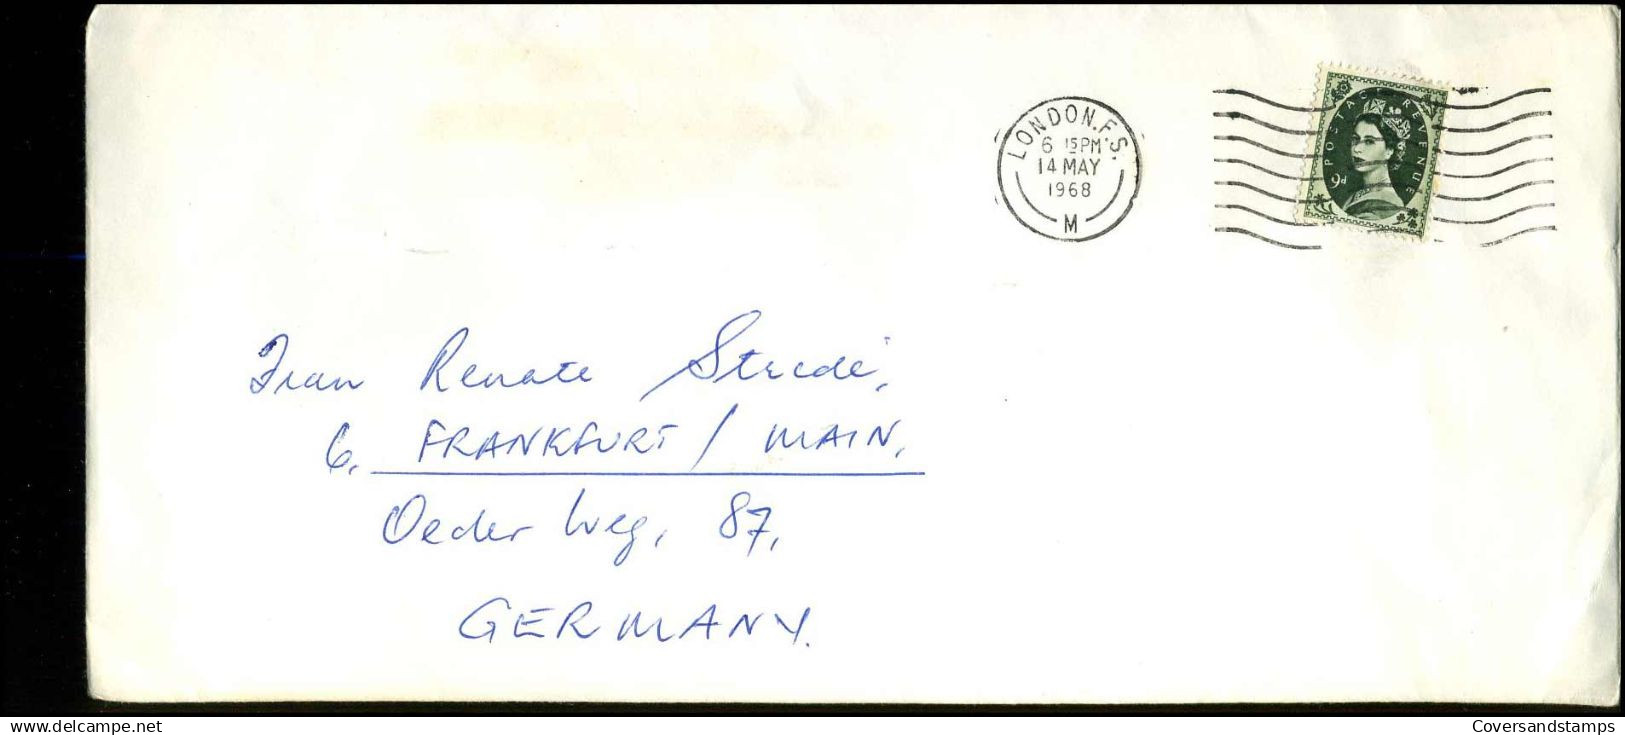 LONDON.F.S.
6 15PM
14 MAY
1968
M
POSTAGE REVENUE
9d
Frau Renate
6. FRANKFURT / MAIN,
Oeder Weg, 87,
GERMANY.
Coversandstamps